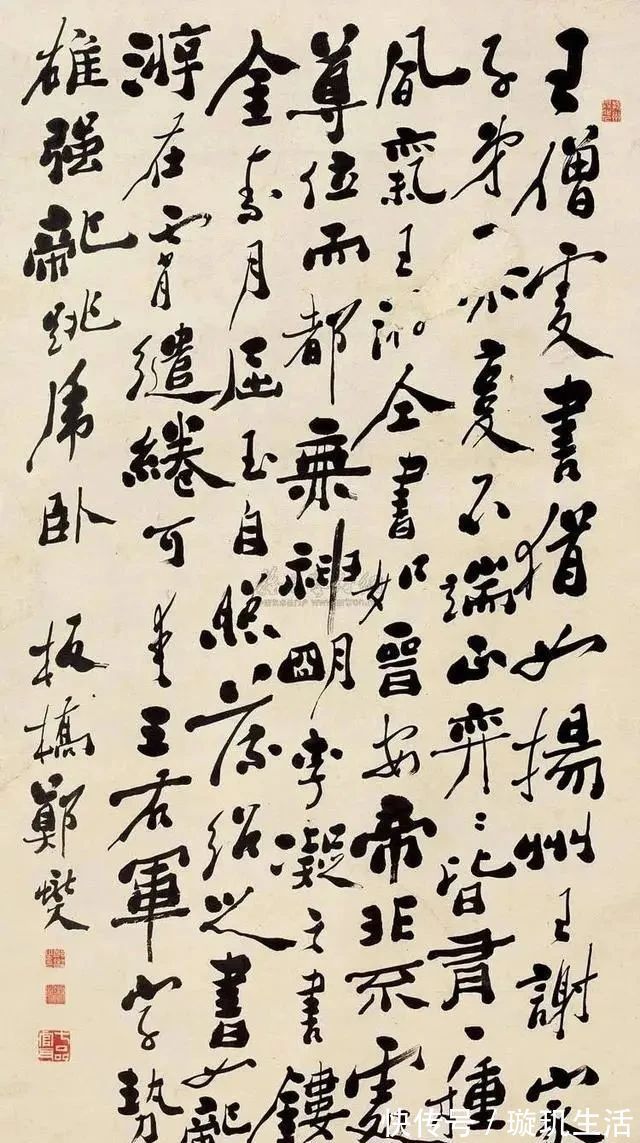 王僧虔書猶如揚州王謝家
子弟一亦夏不端正奕〻皆有一種
風氣王 書如晉安帝非不處
尊位而都無神明李凝之書鏤
金素月屈玉自照 之書如龍
游在霄繾綣可愛王右軍字勢
雄強龍跳虎臥
板橋鄭燮
七品官耳
快传号 / 璇玑生活